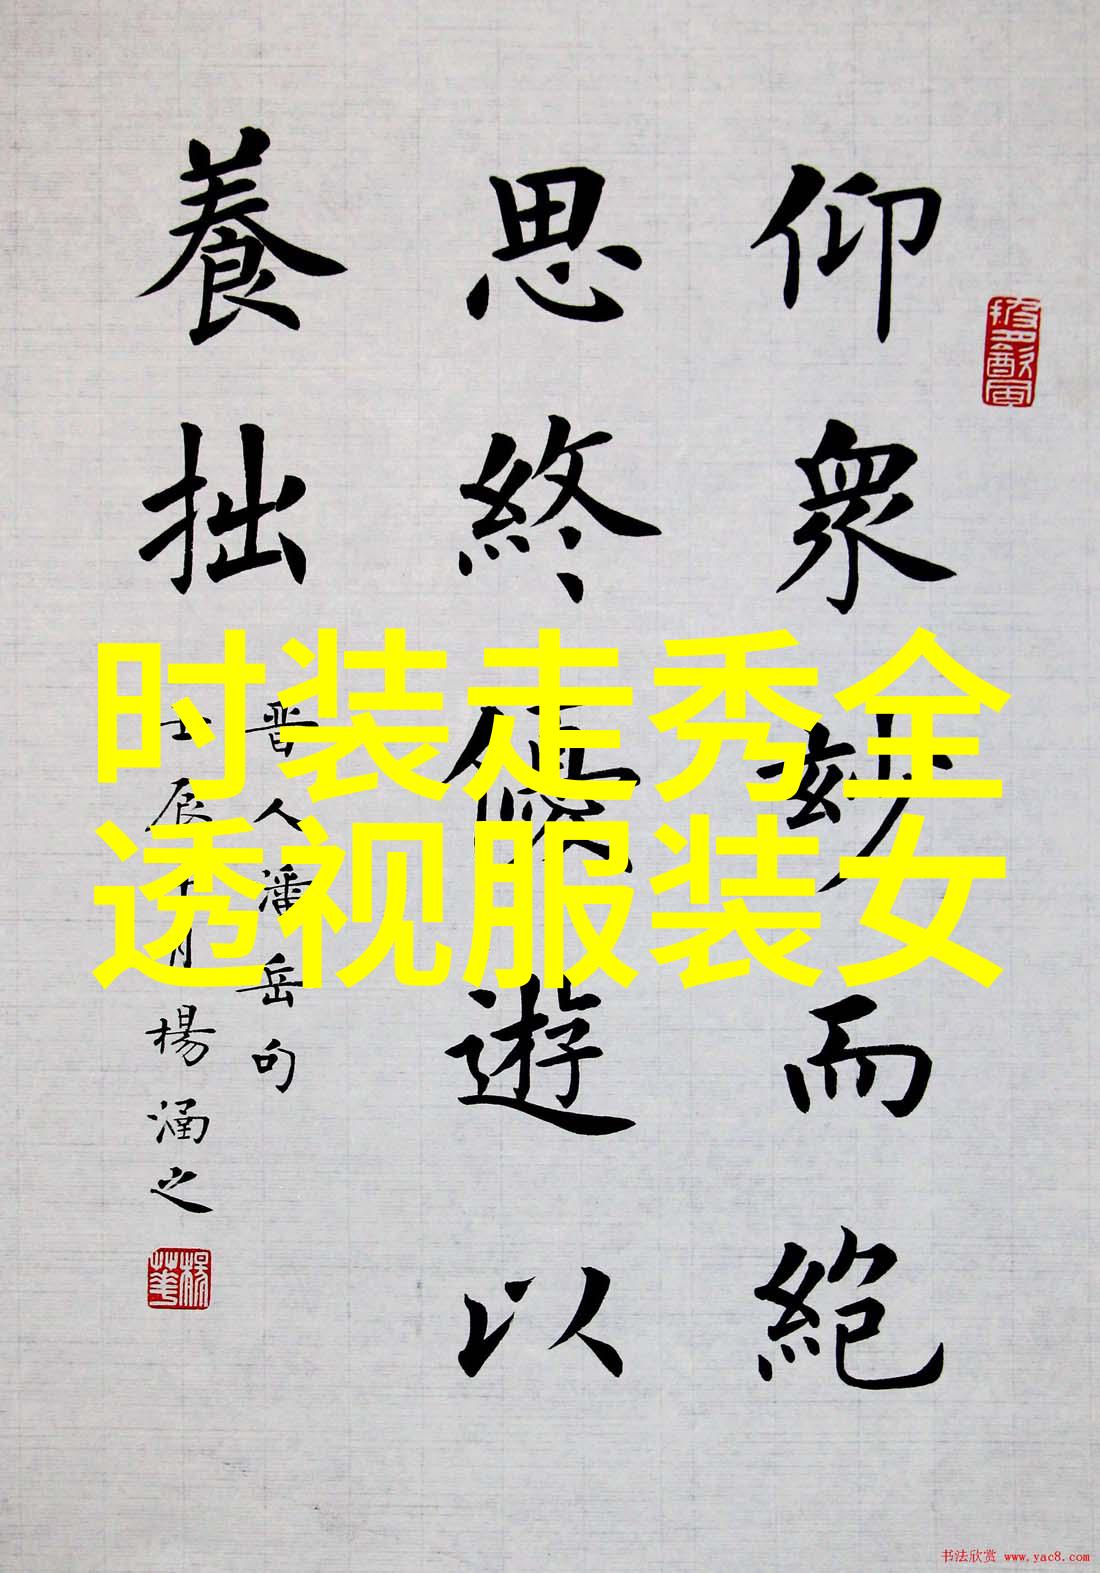 仰衆妙而絶
思終優遊以
養拙
晋人潘岳句
壬辰十月楊涵之
时装走秀全
透视服装女
书法欣赏 www.yac8.com